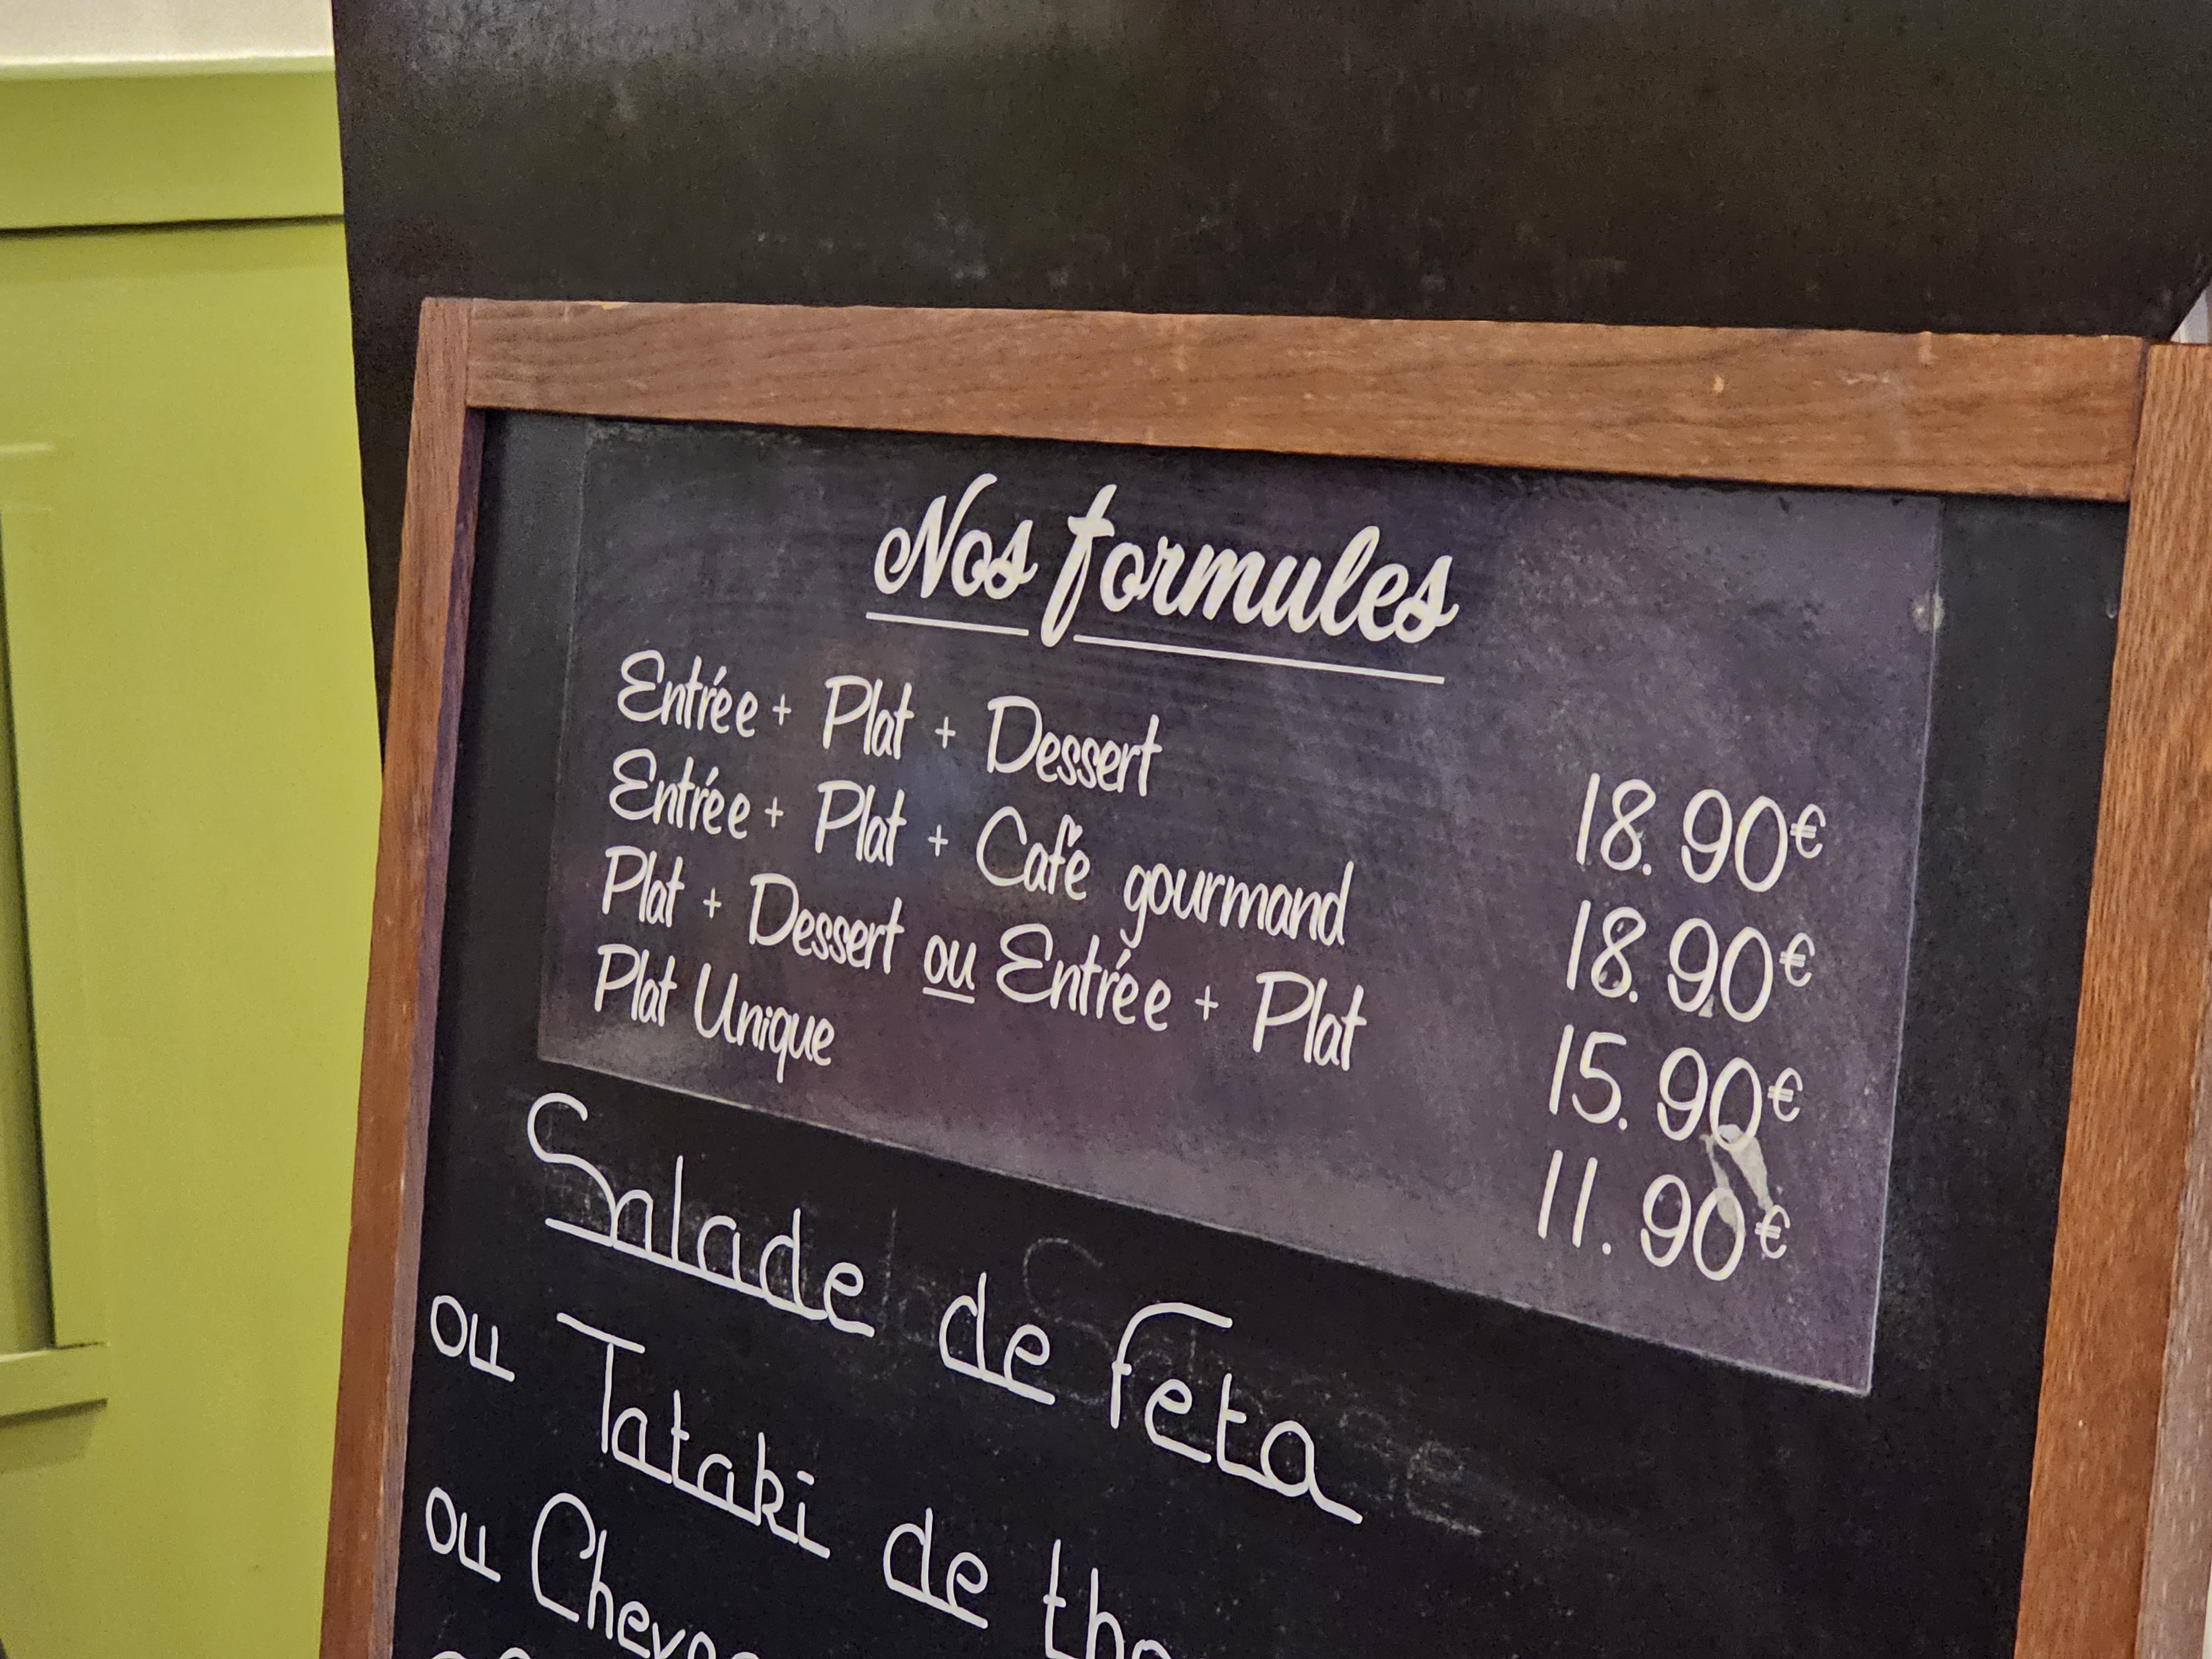 Nos formules
Entrée + Plat + Dessert 18.90€
Entrée + Plat + Café gourmand 18.90€
Plat + Dessert ou Entrée + Plat 15.90€
Plat Unique 11.90€
Salade de Feta
ou Tataki de
ou